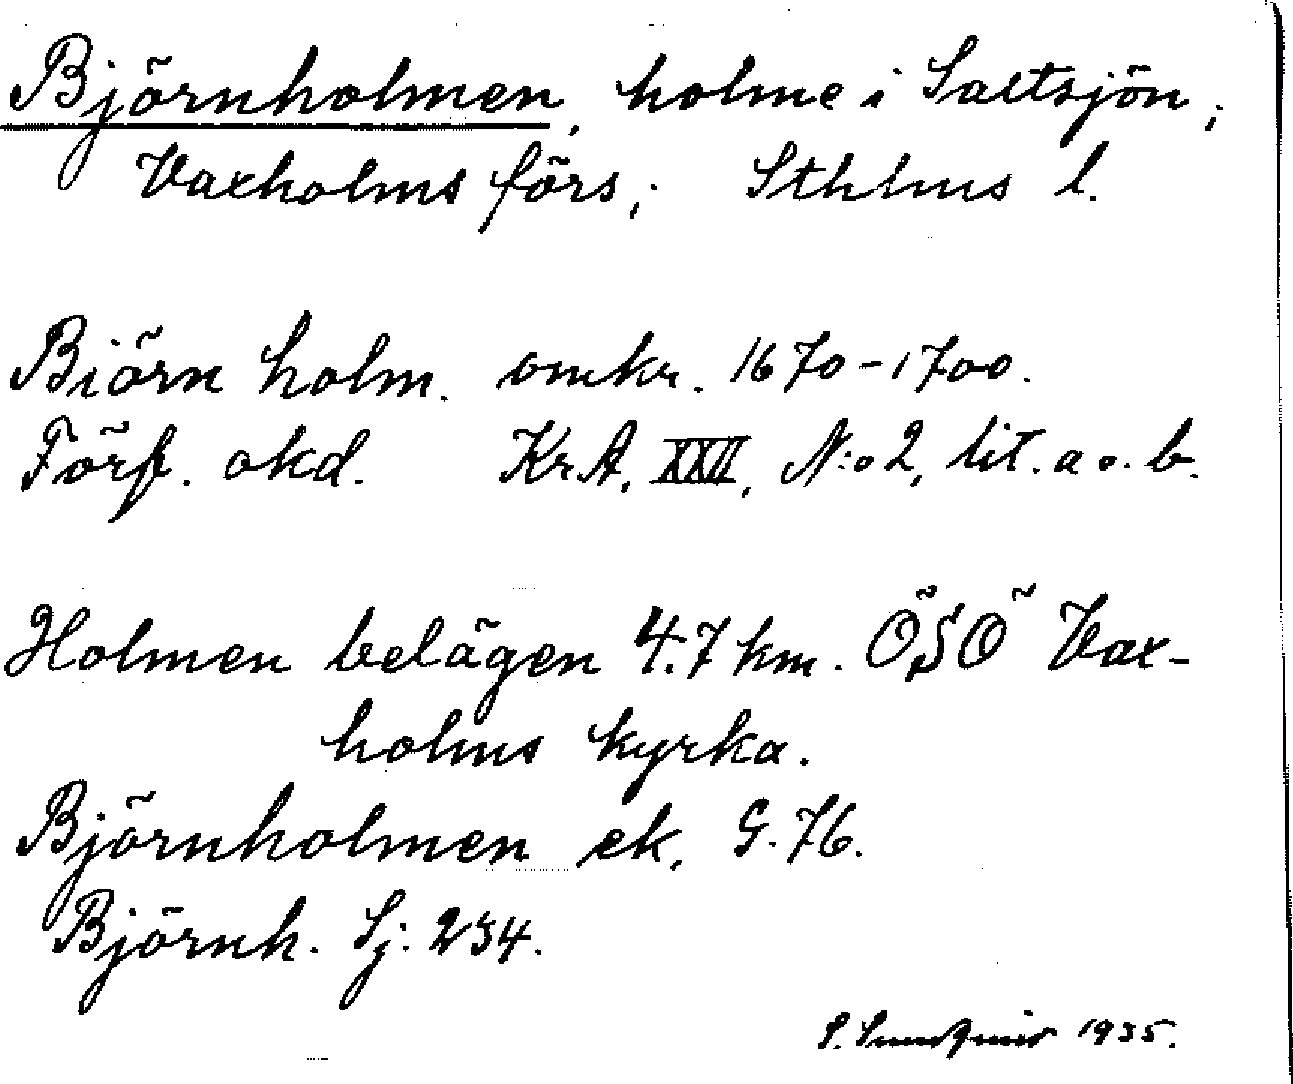 Björnholmen, holme i Saltsjön;
Vaxholms förs; Sthlms l.
Biörn holm. omkr. 1670-1700.
Förf. okd. Kr.A. XXII, N:o 2, lit. a o. b.
Holmen belägen 4.7 km. ÖSÖ Vax-
holms kyrka.
Björnholmen ek. G. 76.
Björnh. Sj. 234.
S. 1935.